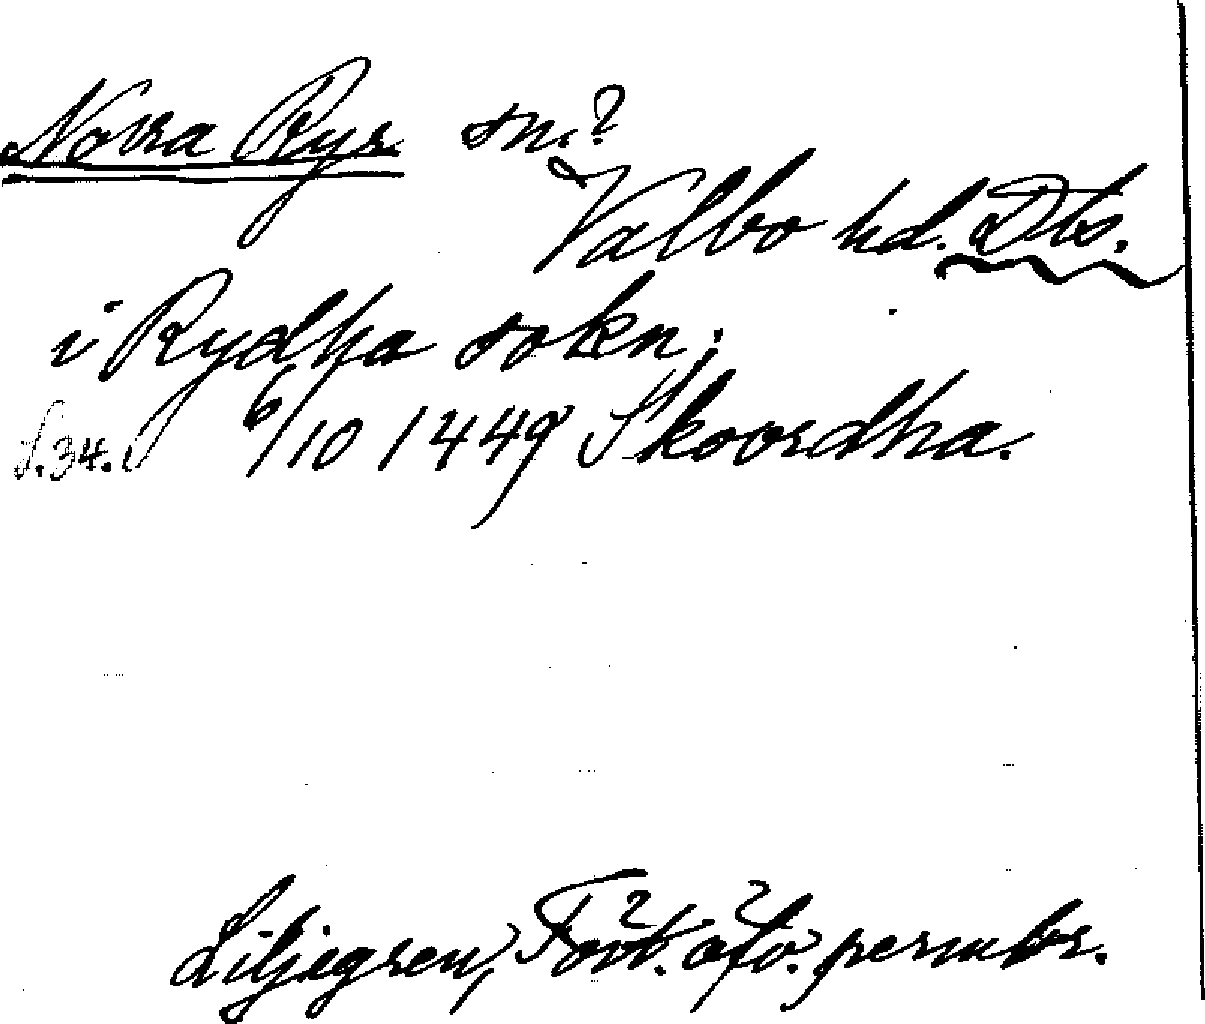 Norra Ryr. sn.?
Valbo hd. Dls.
i Rydha sokn;
S.34. 6/10 1449 Skovrdha.
Liljegren, Fört. öfv. permbr.